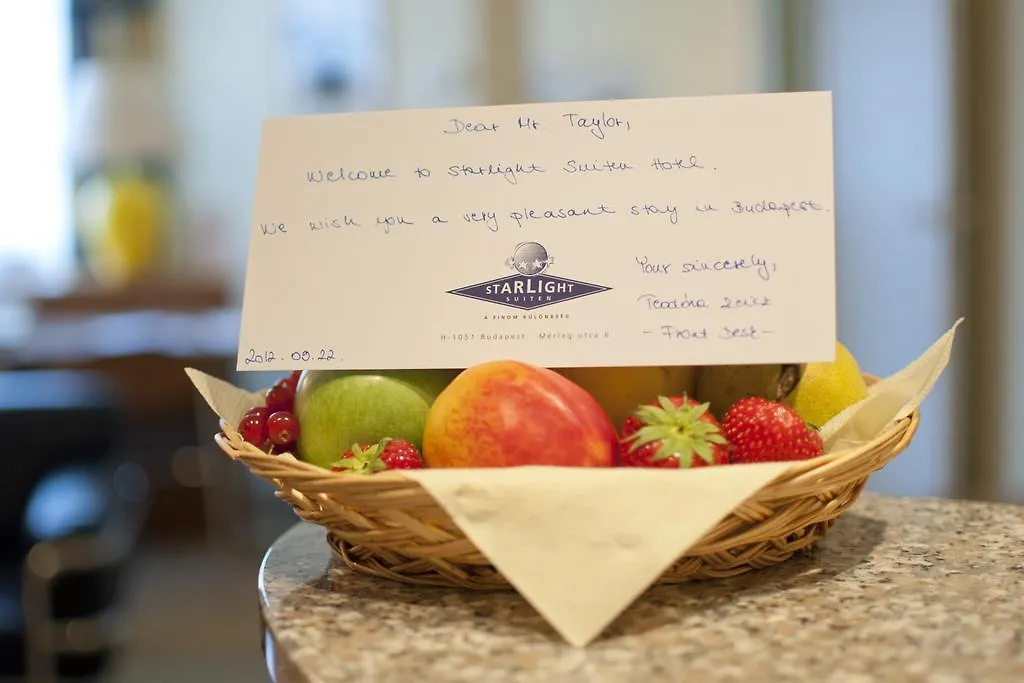 Dear Mr. Taylor,
Welcome to Starlight Suiten Hotel.
We wish you a very pleasant stay in Budapest.
Your sincerely,
Teodóra
- Front Desk -
STARLIGHT
SUITEN
A FINOM KÜLÖNBSÉG
H-1051 Budapest Mérleg utca 6
2012. 09. 22.